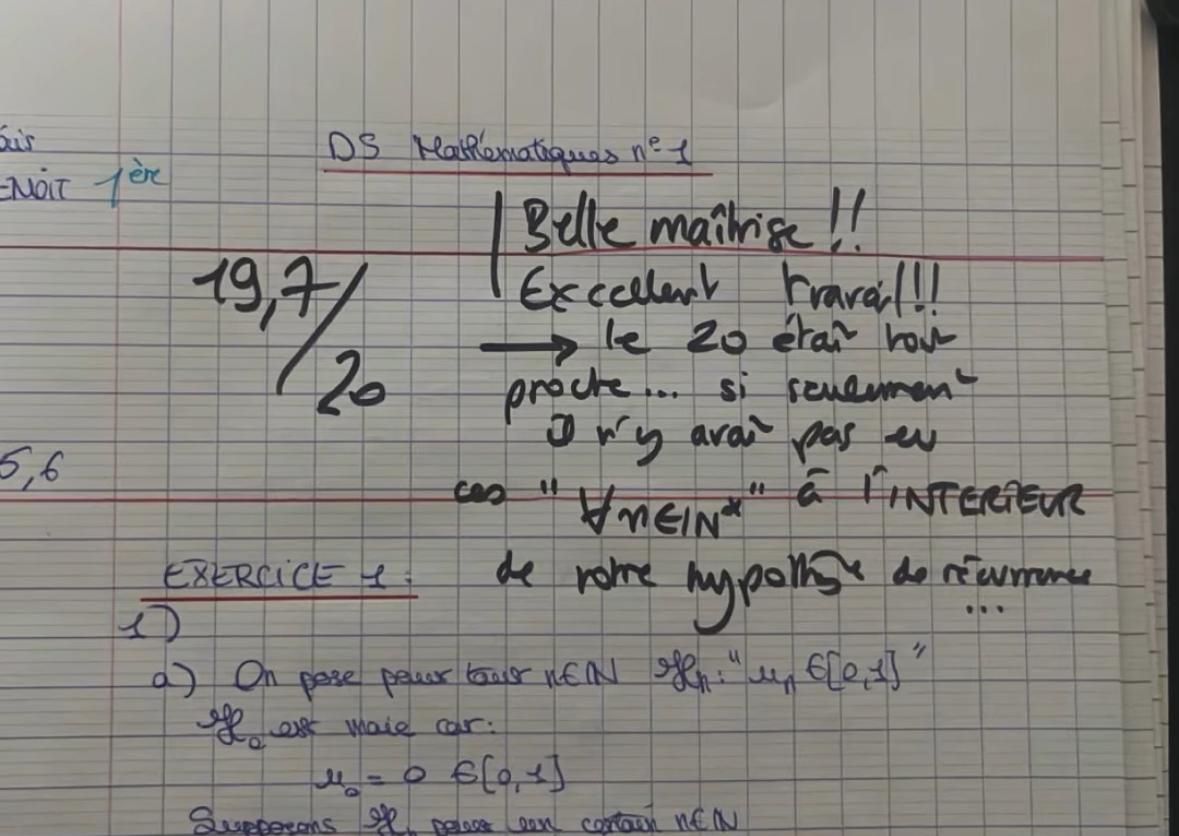 DS Mathématiques n° 1
ENOIT 1ère
Belle maîtrise !!
19,7/20
Excellent travail !!
→ le 20 était tout
proche... si seulement
il n'y avait pas eu
5,6
ces "∀n∈IN*" à l'INTERIEUR
de votre hypothèse de récurrence
...
EXERCICE 1 :
1)
a) On pose pour tout n∈IN ℋn : "un ∈[0,1]"
ℋ0 est vraie car :
u0 = 0 ∈[0,1]
Supposons ℋn pour un certain n∈IN